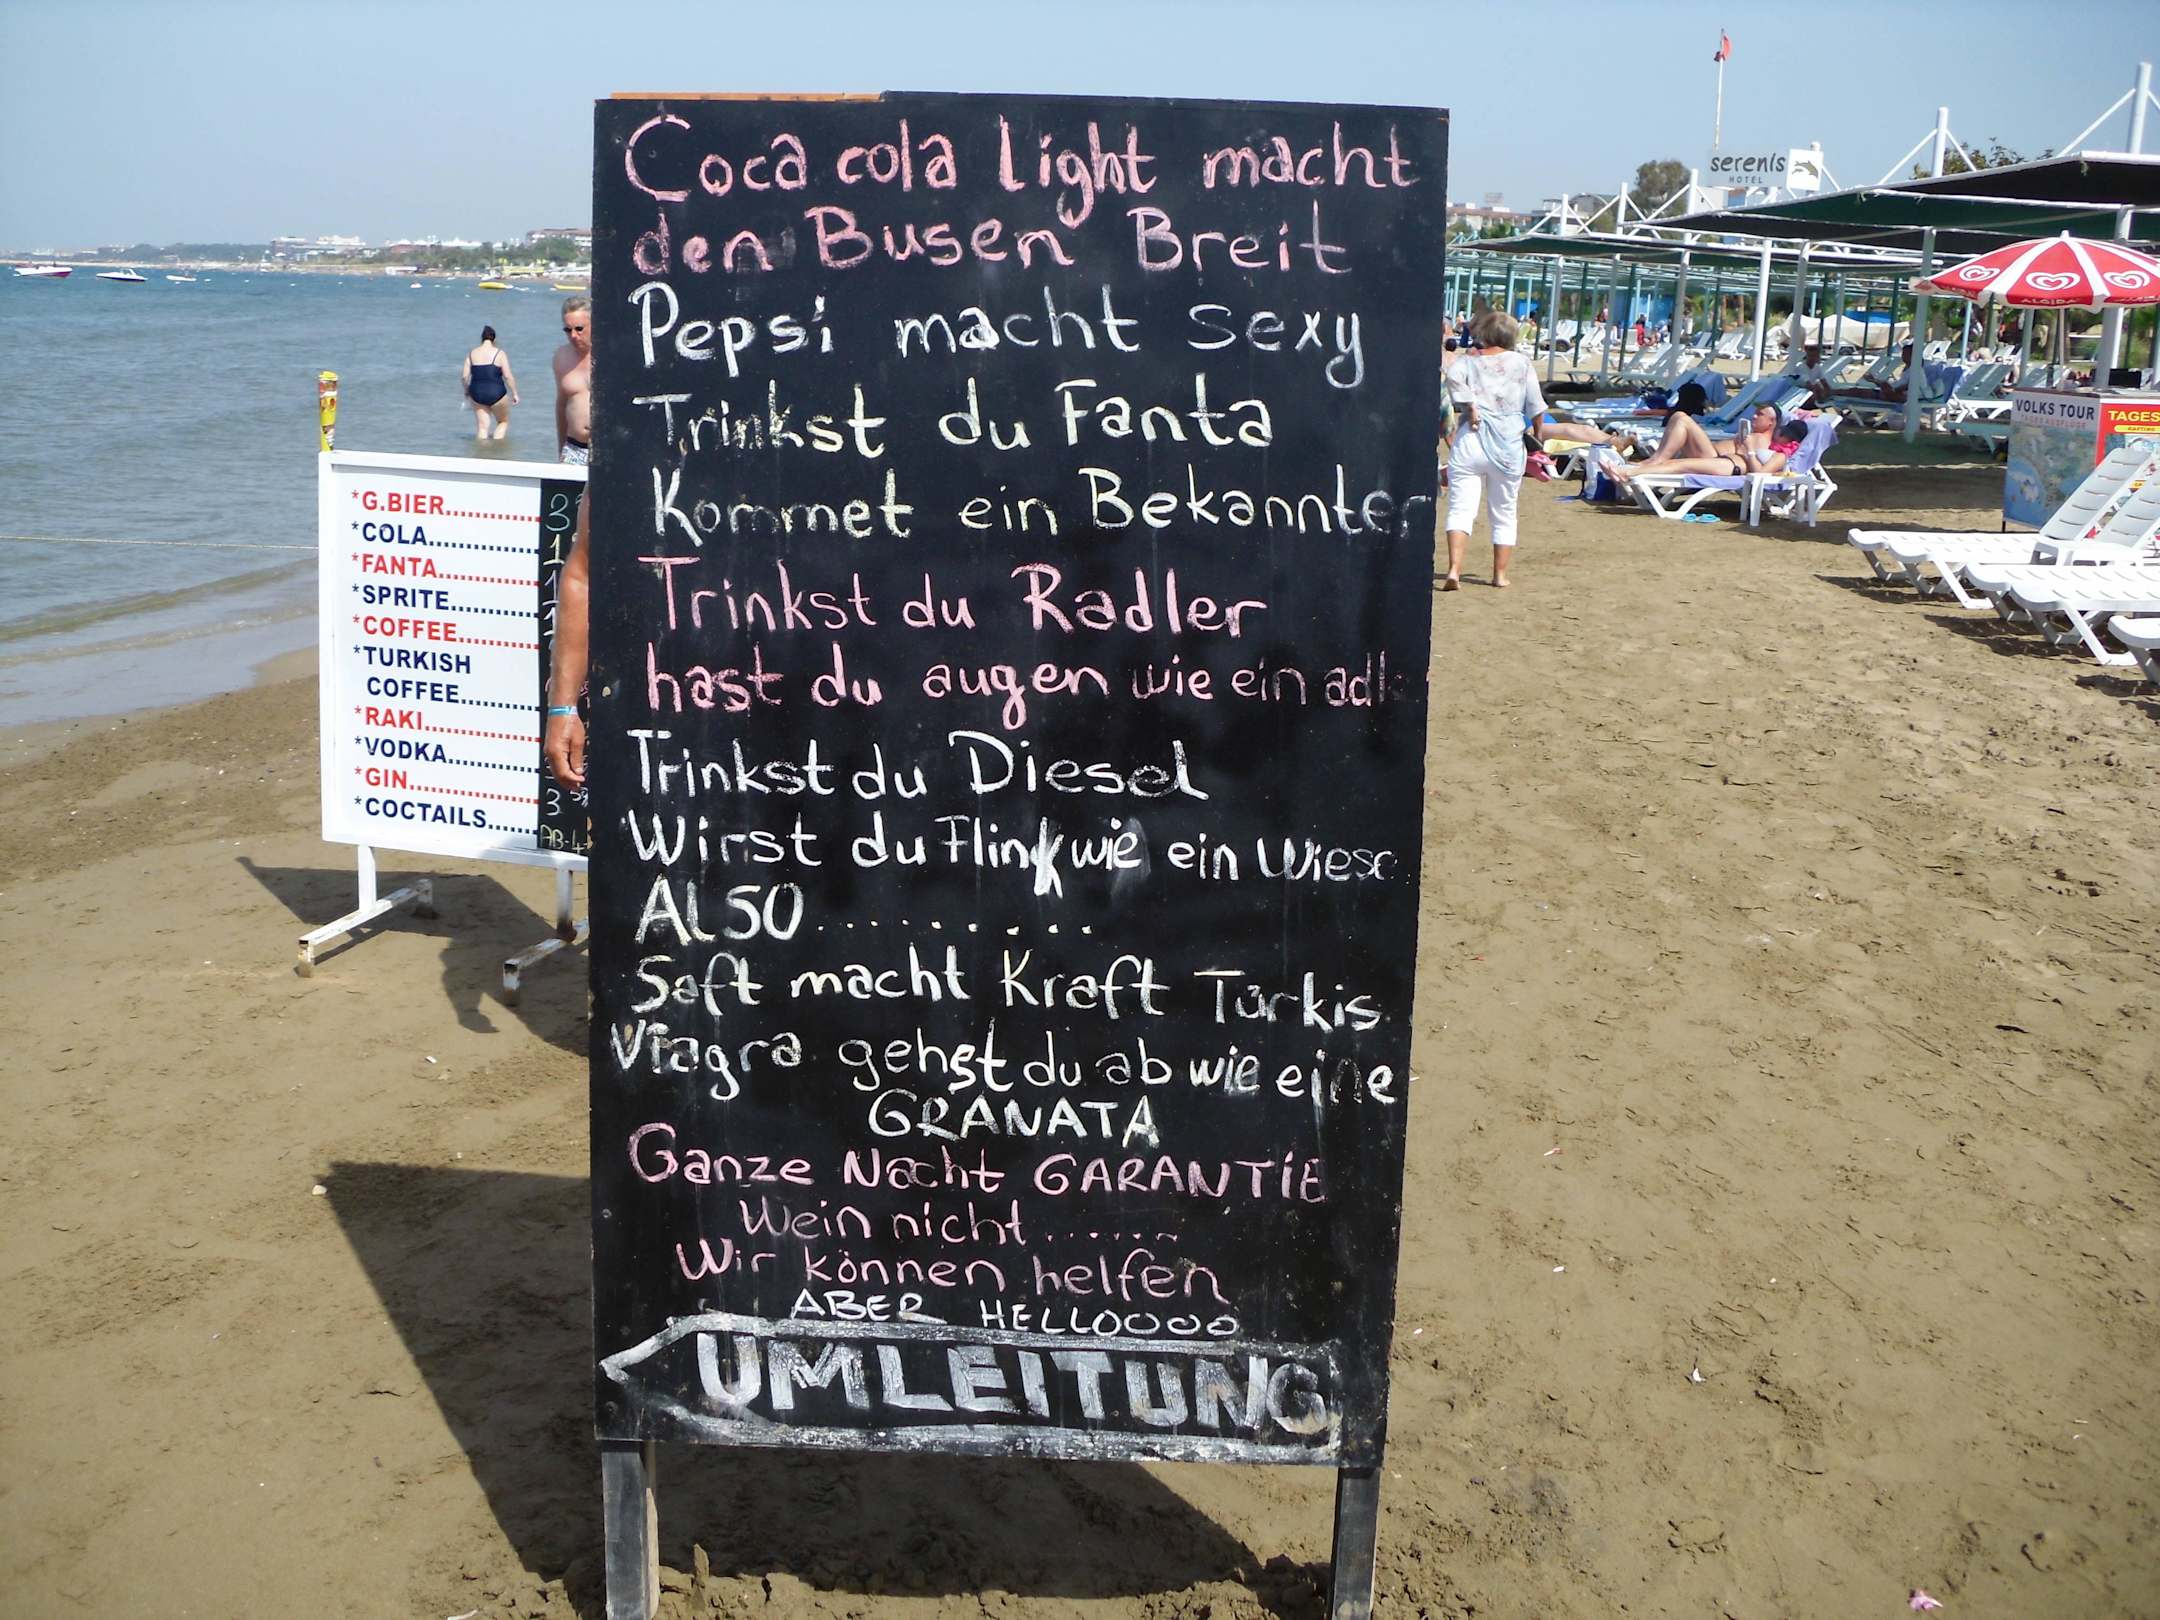 Coca cola light macht
den Busen Breit
Pepsi macht sexy
Trinkst du Fanta
Kommet ein Bekannter
Trinkst du Radler
hast du augen wie ein adl
Trinkst du Diesel
Wirst du Flink wie ein Wiese
ALSO..........
Saft macht Kraft Türkis
Viagra gehst du ab wie eine
GRANATA
Ganze Nacht GARANTIE
Wein nicht......
Wir können helfen
ABER HELLOOOO
UMLEITUNG
*G.BIER............. 3
*COLA............... 1
*FANTA.............. 1
*SPRITE.............
*COFFEE.............
*TURKISH
COFFEE............
*RAKI...............
*VODKA..............
*GIN................
*COCTAILS....... 3
AB-4
serenis
HOTEL
ALGIDA
VOLKS TOUR
TAGES